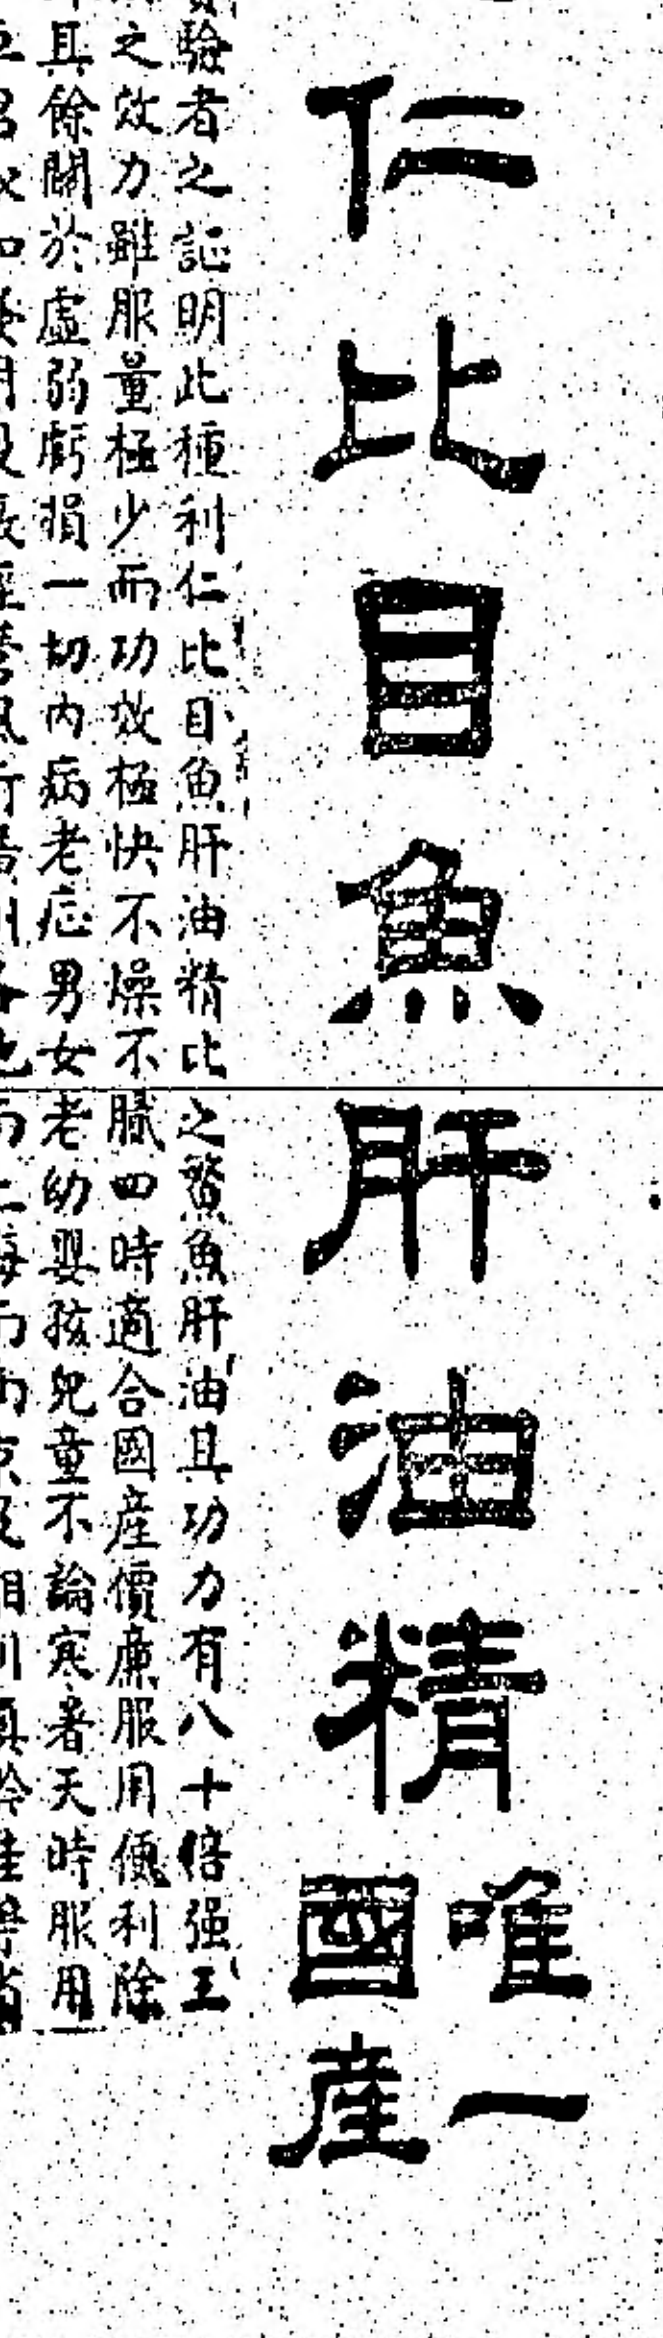 仁比目魚肝油精
唯一
國產
驗者之証明此種利仁比目魚肝油精比之鰵魚肝油其功力有八十倍强五
之效力雖服量極少而功效極快不燥不膩四時適合國產價廉服用便利除
其餘關於虛弱虧損一切內病老症男女老幼嬰孩兒童不論寒暑天時服用